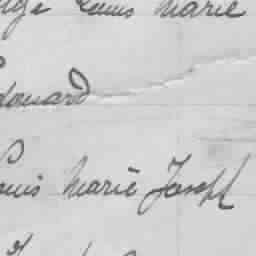 Louis Marie
Edouard
Louis Marie Joseph